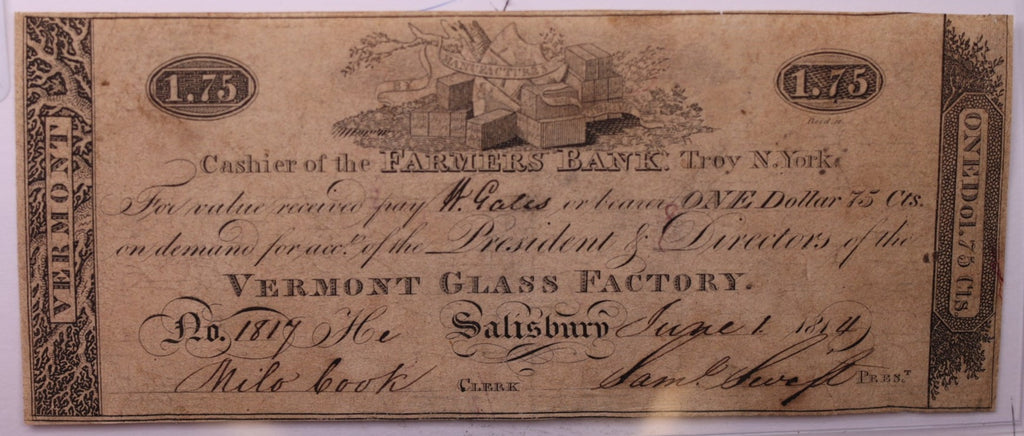 VERMONT
1.75
MANUFACTURES
1.75
Cashier of the FARMERS BANK. Troy N. York.
For value received pay H. Gates or bearer ONE Dollar 75 Cts.
on demand for acct. of the President & Directors of the
VERMONT GLASS FACTORY.
No. 1817 He Salisbury June 1. 1814
Milo Cook CLERK Saml. Swift PREST.
ONE Dol. 75 Cts